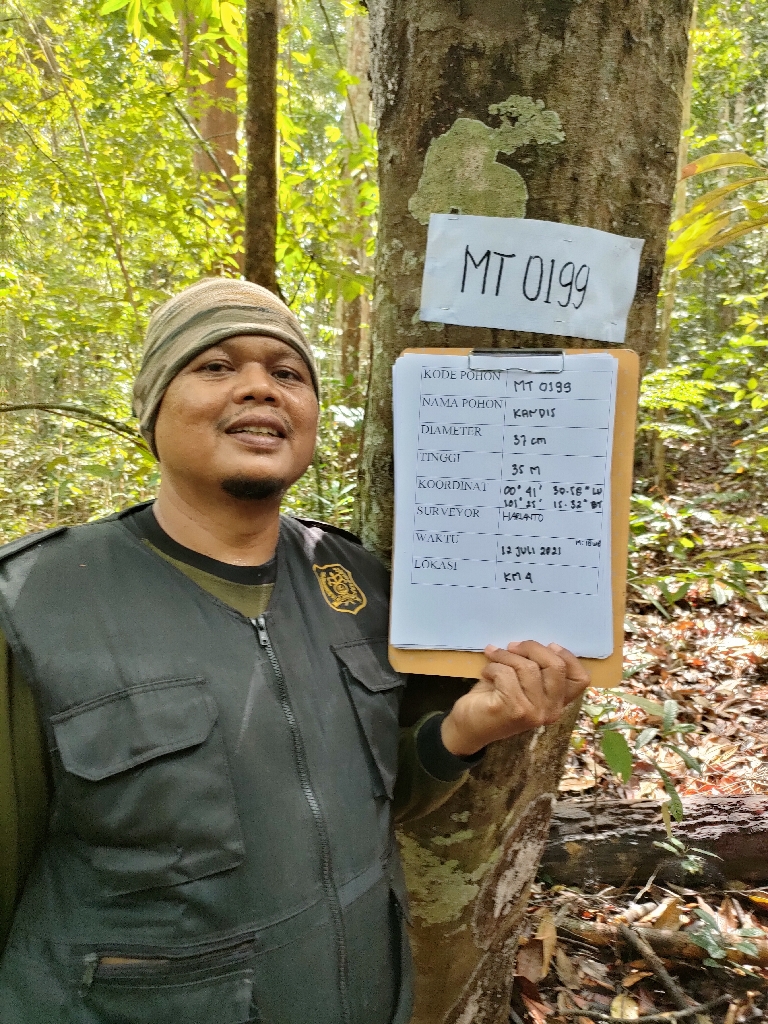 MT 0199
KODE POHON MT 0199
NAMA POHON KANDIS
DIAMETER 37 cm
TINGGI 35 M
KOORDINAT 00° 41' 30.58" LU
101° 25' 15.52" BT
SURVEYOR HARIANTO
WAKTU 12 JULI 2021
LOKASI KM 4